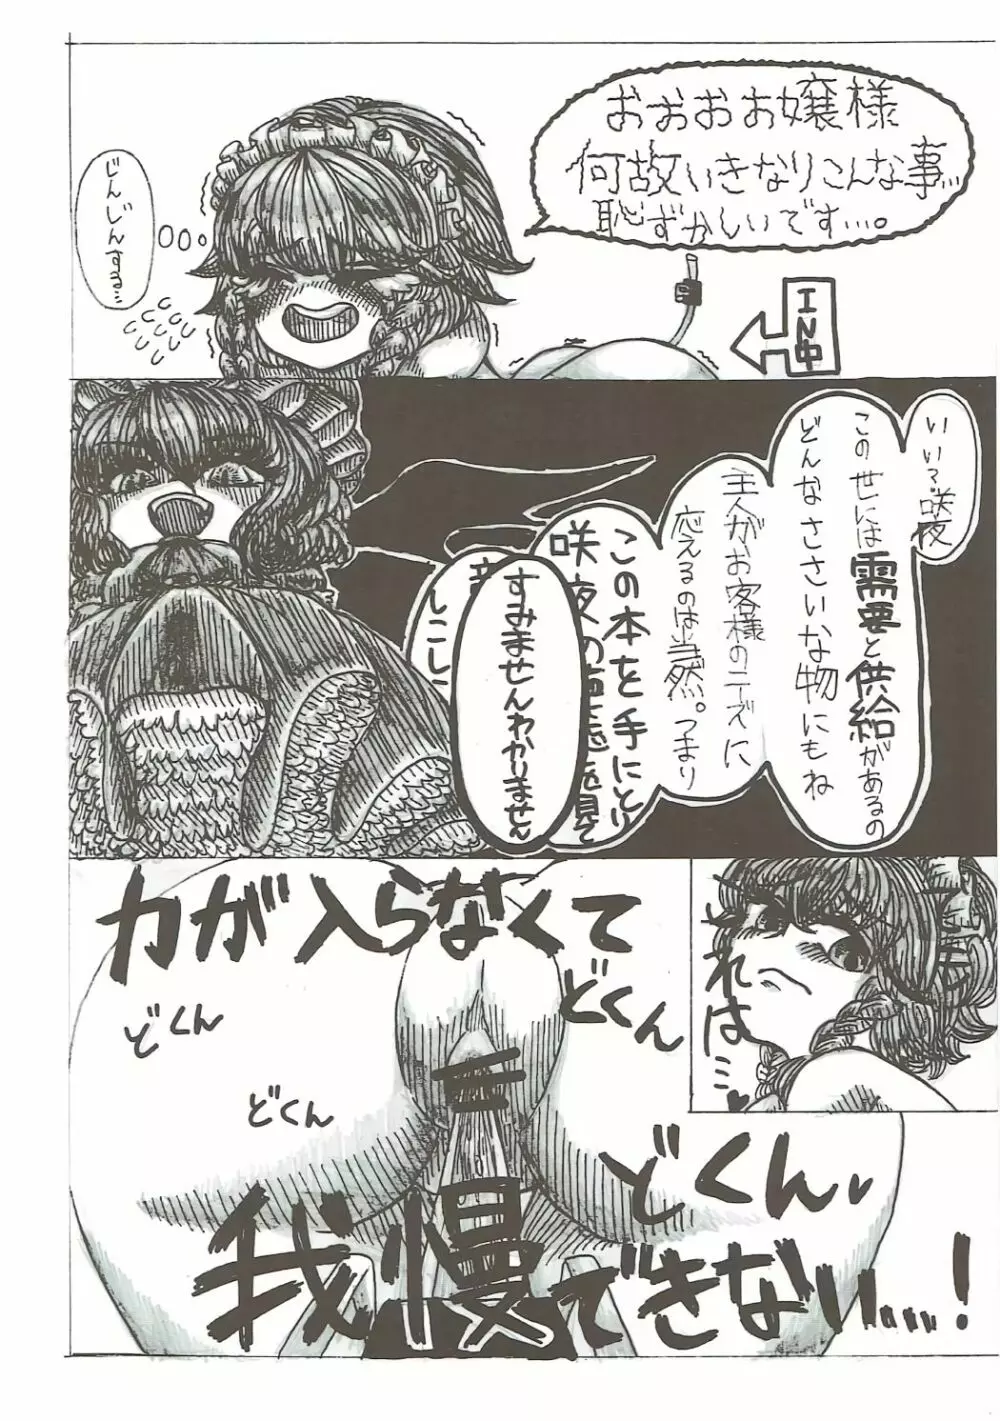 おおおお嬢様
何故いきなりこんな事…
恥ずかしいです…。
じんじんする…
IN中
いい？咲夜
この世には需要と供給があるの
どんなささいな物にもね
主人がお客様のニーズに
応えるのは当然。つまり
この本を手にとり
咲夜の
を見て
すみませんわかりません
れは…
力が入らなくて
どくん
どくん
どくん
どくん
我慢できない…！